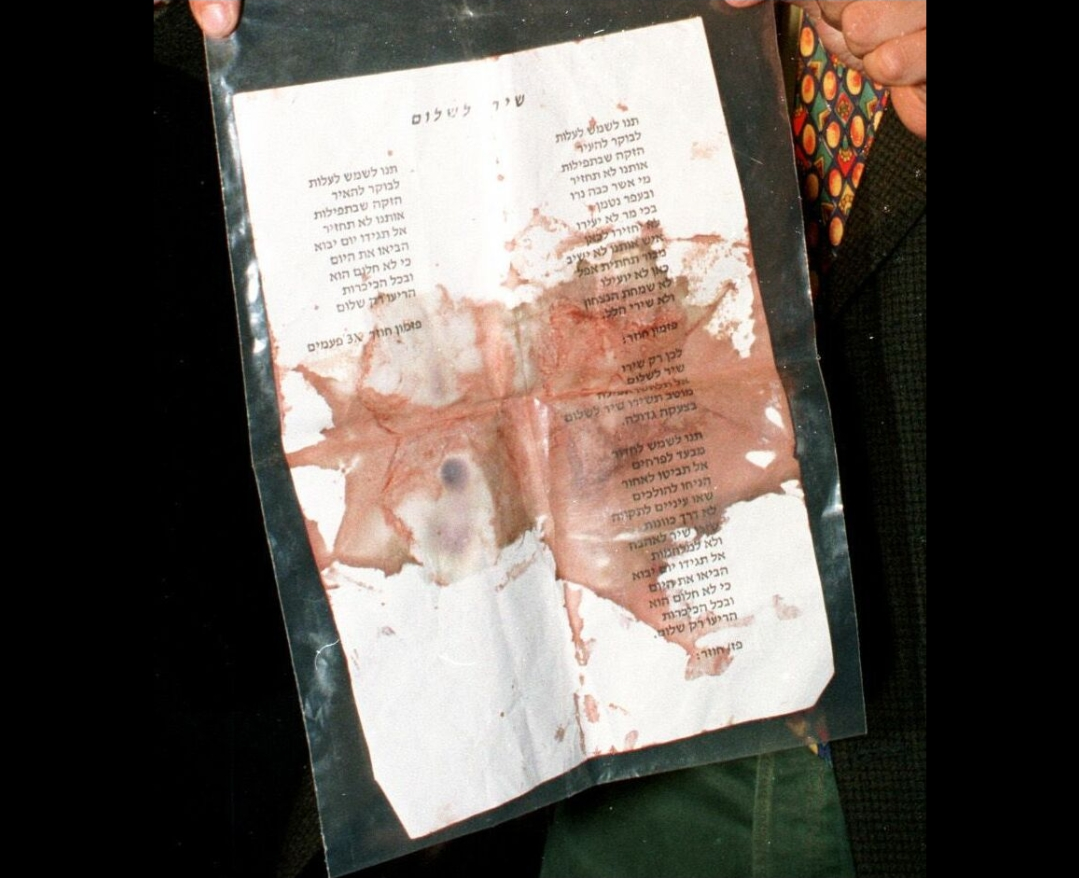 שיר לשלום
תנו לשמש לעלות
לבוקר להעיר
הזקה שבתפילות
אותנו לא תחזיר
מי אשר כבה נרו
ובעפר נטמן
בכי מר לא יעירו
לא יחזירו לכאן
איש אותנו לא ישיב
מבור תחתית אפל
כאן לא יועילו
לא שמחת הנצחון
ולא שירי הלל.
פזמון חוזר:
לכן רק שירו
שיר לשלום
אל
מוטב תשירו שיר לשלום
בצעקה גדולה.
תנו לשמש לחדור
מבעד לפרחים
אל תביטו לאחור
הניחו להולכים
שאו עיניים לתקווה
לא דרך כוונות
שיר לאהבה
ולא למלחמות
אל תגידו יום יבוא
הביאו את היום
כי לא חלום הוא
ובכל הכיכרות
הריעו רק שלום.
חוזר:
תנו לשמש לעלות
לבוקר להאיר
הזקה שבתפילות
אותנו לא תחזיר
אל תגידו יום יבוא
הביאו את היום
כי לא חלום הוא
ובכל הכיכרות
הריעו רק שלום
פזמון חוזר 3X פעמים